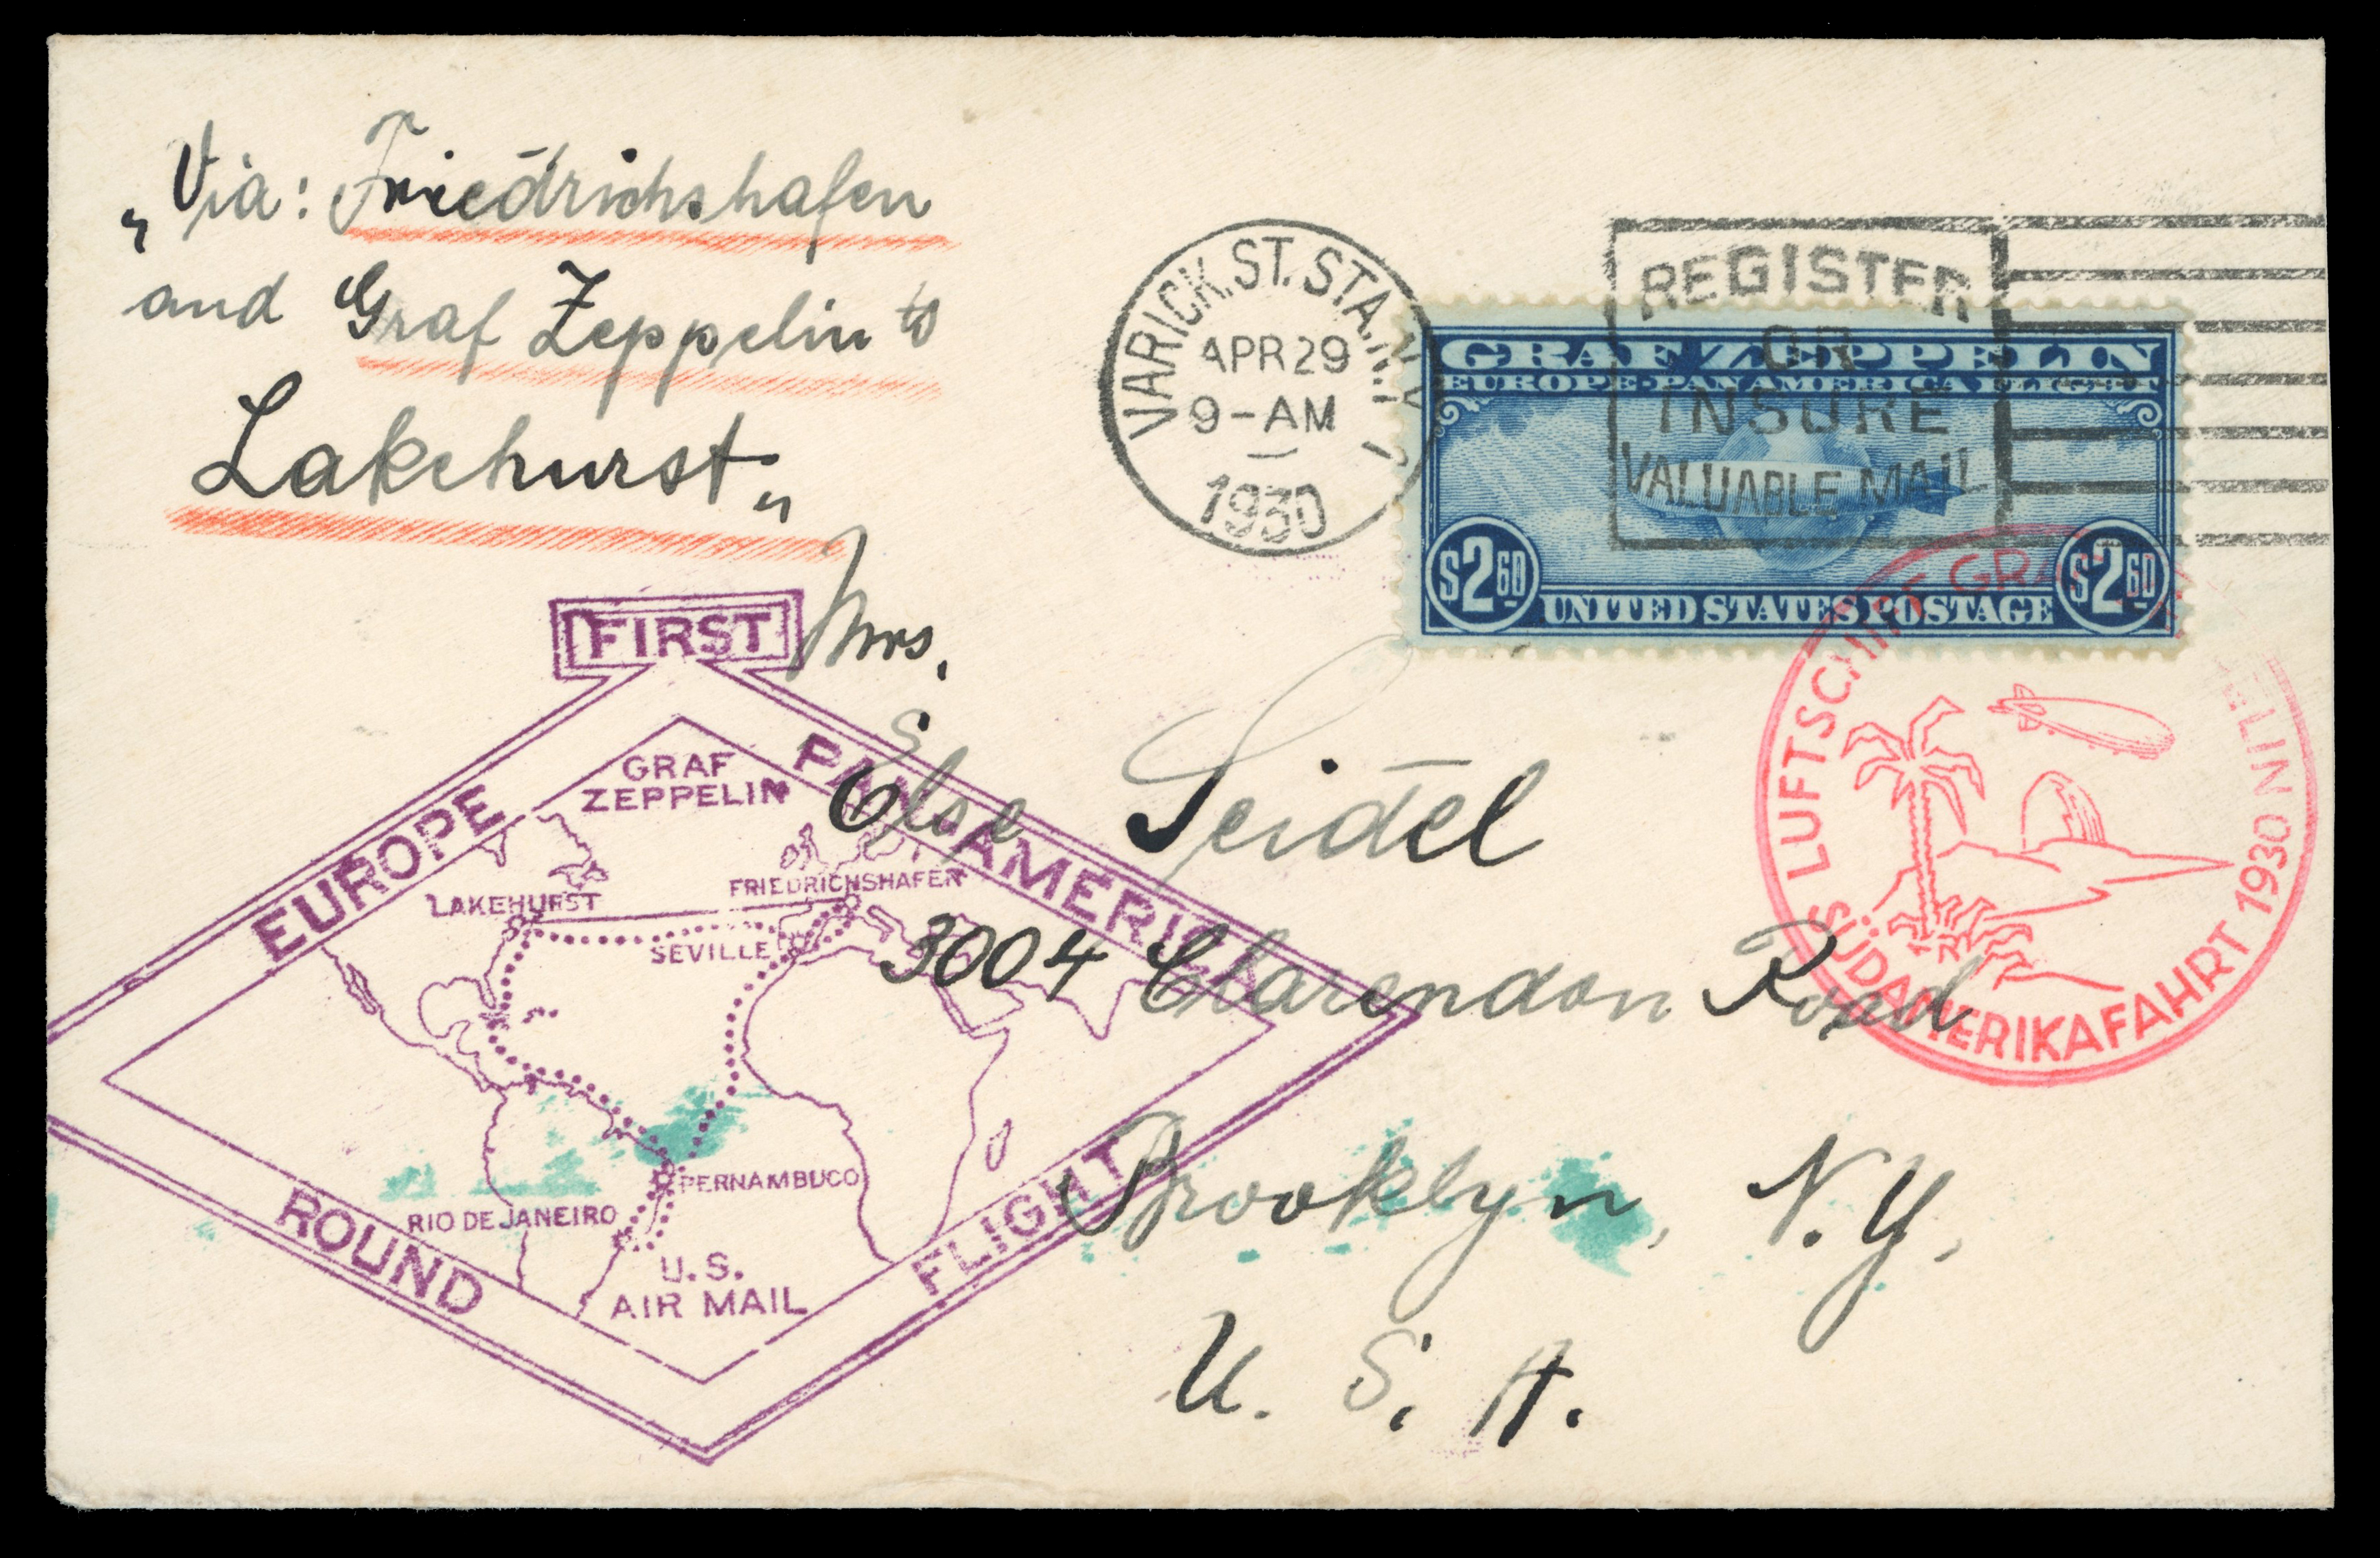 „Via: Friedrichshafen
and Graf Zeppelin to
Lakehurst"
VARICK ST. STA. N.Y.
APR 29
9-AM
1930
REGISTER
OR
INSURE
VALUABLE MAIL
GRAF ZEPPELIN
EUROPE-PAN AMERICA FLIGHT
$2 60
$2 60
UNITED STATES POSTAGE
Mrs.
Else Seidel
3004 Clarendon Road
Brooklyn, N.Y.
U. S. A.
FIRST
EUROPE
PAN-AMERICA
ROUND
FLIGHT
GRAF
ZEPPELIN
LAKEHURST
FRIEDRICHSHAFEN
SEVILLE
PERNAMBUCO
RIO DE JANEIRO
U.S.
AIR MAIL
LUFTSCHIFF GRAF ZEPPELIN
SÜDAMERIKAFAHRT 1930